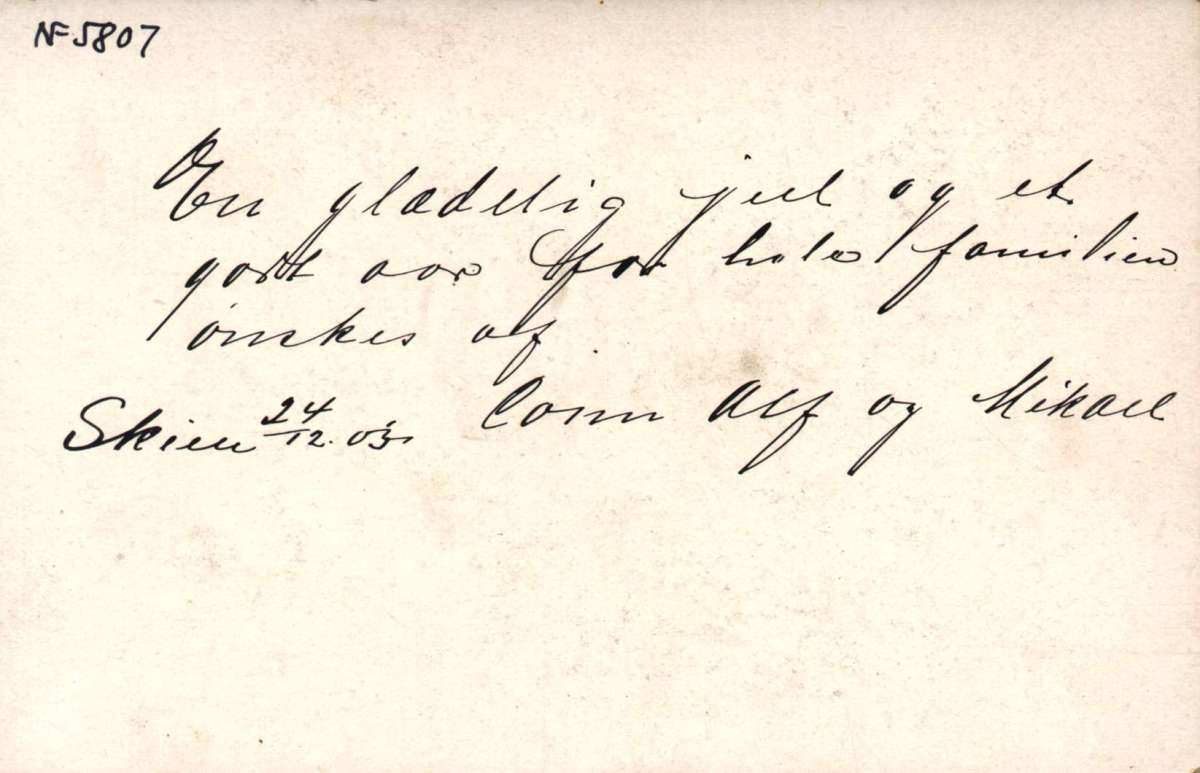 NF 5807
En glædelig jul og et
godt aar for hele familien
ønskes af
Conn Alf og Mikael
Skien 24/12. 03.